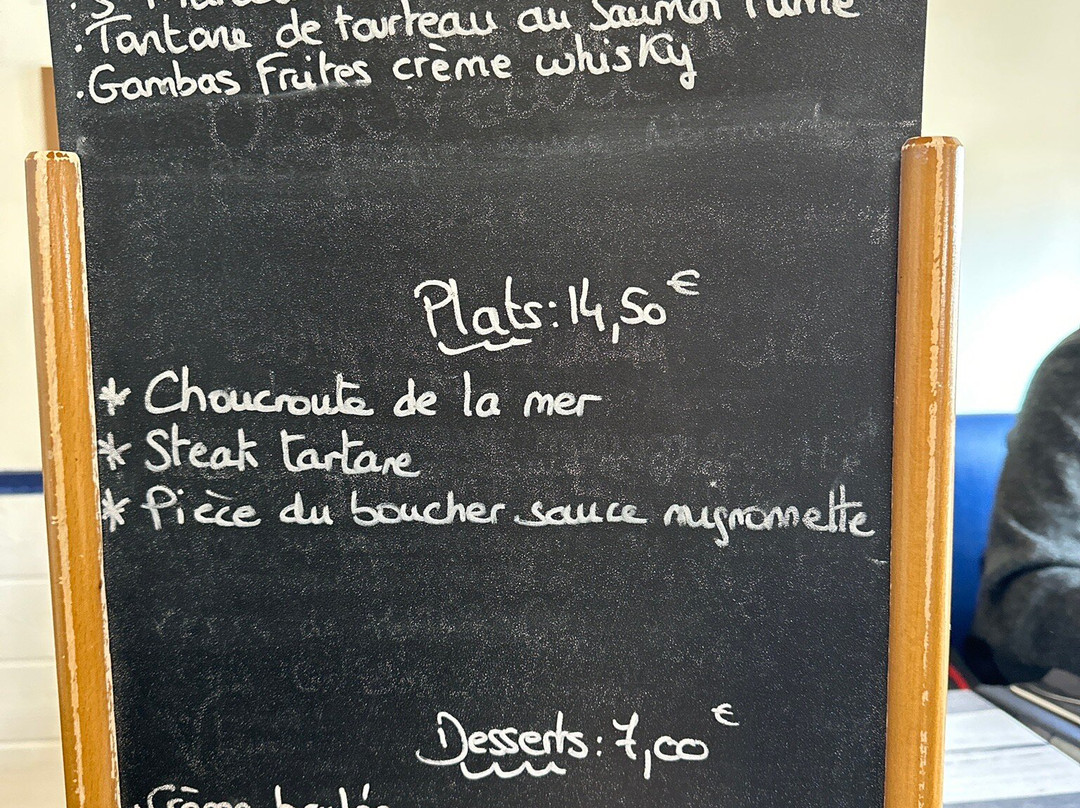 .Tantare de tourteau au Saumon Fumé
.Gambas Frites crème whisky
Plats: 14,50€
* Choucroute de la mer
* Steak tartare
* Pièce du boucher sauce mignonnette
Desserts: 7,00€
.Crème brulée